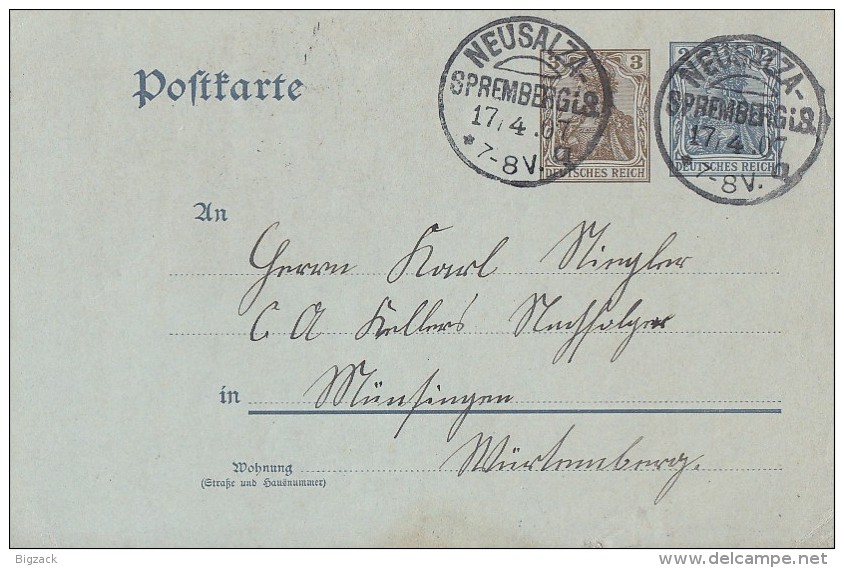 NEUSALZA-
SPREMBERG i.S.
17/4.07
* 7-8 V. a
3 3
DEUTSCHES REICH
NEUSALZA-
SPREMBERG i.S.
17/4.07
* 7-8 V. a
2 2
DEUTSCHES REICH
Postkarte
An
Herrn Karl Stiegler
C A Kellers Nachfolger
in Münsingen
Würtemberg.
Wohnung
(Straße und Hausnummer)
Bigzack
delcampe.net